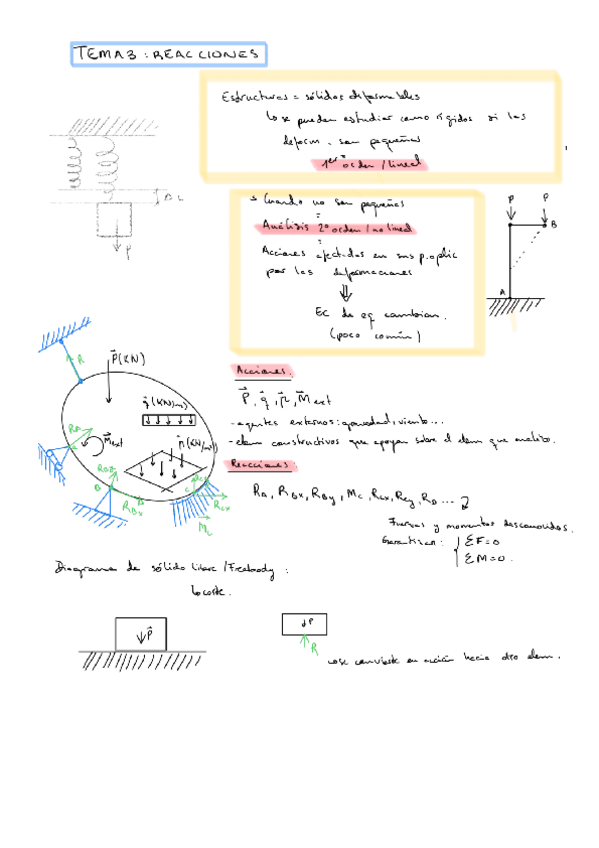 TEMA 3: REACCIONES
Estructuras = sólidos deformables
Lo se pueden estudiar como rígidos si las
deform. son pequeñas
1er orden / lineal
Δ L
P
→ Cuando no son pequeñas
Análisis 2º orden / no lineal
Acciones afectadas en sus p. aplic
por las deformaciones
⇓
Ec de eq cambian.
(poco común)
P P
B
A
Acciones:
P, q, n, M ext
- agentes externos: gravedad, viento...
- elem constructivos que apoyan sobre el elem que analizo.
R
P (KN)
q (KN/m)
n (KN/m²)
RA
A
Mext
RBy
B
RBx
RCy
C
RCx
MC
Reacciones:
RA, RBx, RBy, MC, RCx, RCy, RD ...
Fuerzas y momentos desconocidos.
Garantizan: { ΣF=0
ΣM=0.
Diagrama de sólido libre / Freebody :
Lo corte.
P
P
R
Lo se convierte en acción hacia otro elem.